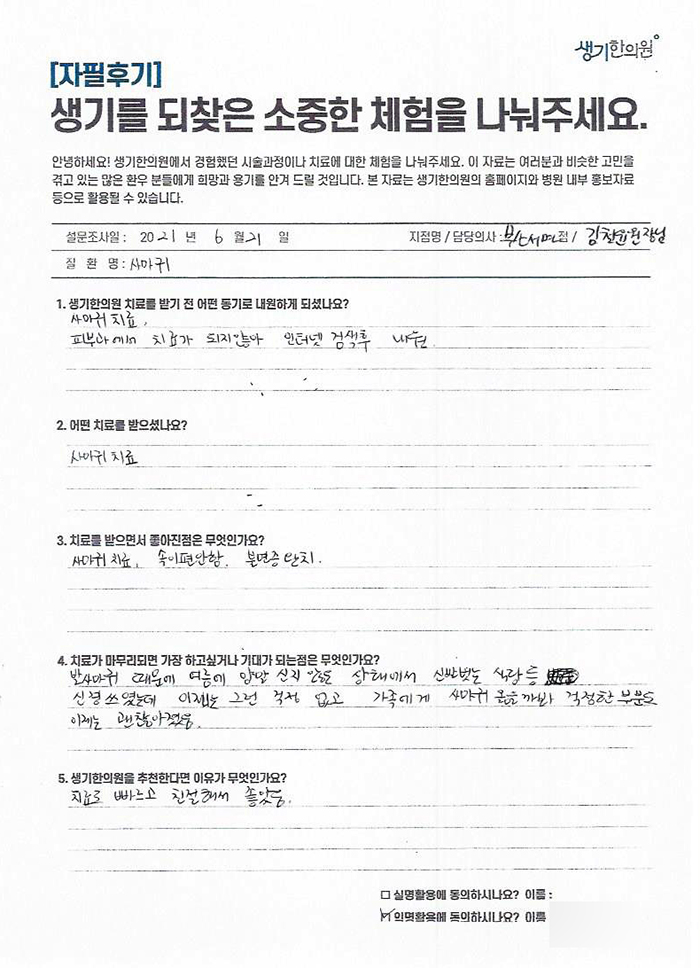 생기한의원
[자필후기]
생기를 되찾은 소중한 체험을 나눠주세요.
안녕하세요! 생기한의원에서 경험했던 시술과정이나 치료에 대한 체험을 나눠주세요. 이 자료는 여러분과 비슷한 고민을
겪고 있는 많은 환우 분들에게 희망과 용기를 안겨 드릴 것입니다. 본 자료는 생기한의원의 홈페이지와 병원 내부 홍보자료
등으로 활용될 수 있습니다.
설문조사일 : 2021 년 6 월 21 일 지점명 / 담당의사 : 부산서면점 / 김창윤원장님
질 환 명 : 사마귀
1. 생기한의원 치료를 받기 전 어떤 동기로 내원하게 되셨나요?
사마귀 치료,
피부과에서 치료가 되지않아 인터넷 검색후 내원.
2. 어떤 치료를 받으셨나요?
사마귀 치료
3. 치료를 받으면서 좋아진점은 무엇인가요?
사마귀 치료, 속이편안함, 불면증 완치.
4. 치료가 마무리되면 가장 하고싶거나 기대가 되는점은 무엇인가요?
발사마귀 때문에 여름에 양말 신지 않은 상태에서 신발벗는 사람들
신경쓰였는데 이제는 그런 걱정 없고 가족에게 사마귀 옮을까봐 걱정한 부분도
이제는 괜찮아졌음.
5. 생기한의원을 추천한다면 이유가 무엇인가요?
치료도 빠르고 친절해서 좋았음.
□ 실명활용에 동의하시나요? 이름 :
☑ 익명활용에 동의하시나요? 이름